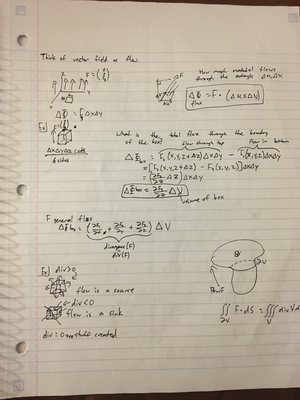 Think of vector field as flow.
F = (0 0 F₃)
How much material flows through the rectangle Δu, Δv.
ΔΦ = F₃ΔxΔy
ΔΦ = F · (Δu × Δv)
flux
Ex
ΔxΔyΔz cube
6 sides
What is the total flux through the boundary of the box?
flow through top
flow in bottom
ΔΦbox = F₃(x,y,z+Δz)ΔxΔy − F₃(x,y,z)ΔxΔy
= [F₃(x,y,z+Δz) − F₃(x,y,z)]ΔxΔy
= [∂F₃/∂z Δz]ΔxΔy
ΔΦbox = ∂F₃/∂z ΔV
Volume of box
F general flux
ΔΦbox = (∂F₁/∂x + ∂F₂/∂y + ∂F₃/∂z) ΔV
divergence(F)
div(F)
Ex div>0
flow is a source
div<0
flow is a sink
div = 0 no stuff created
∂V
∬ F·dS = ∭ div V d
∂V
V